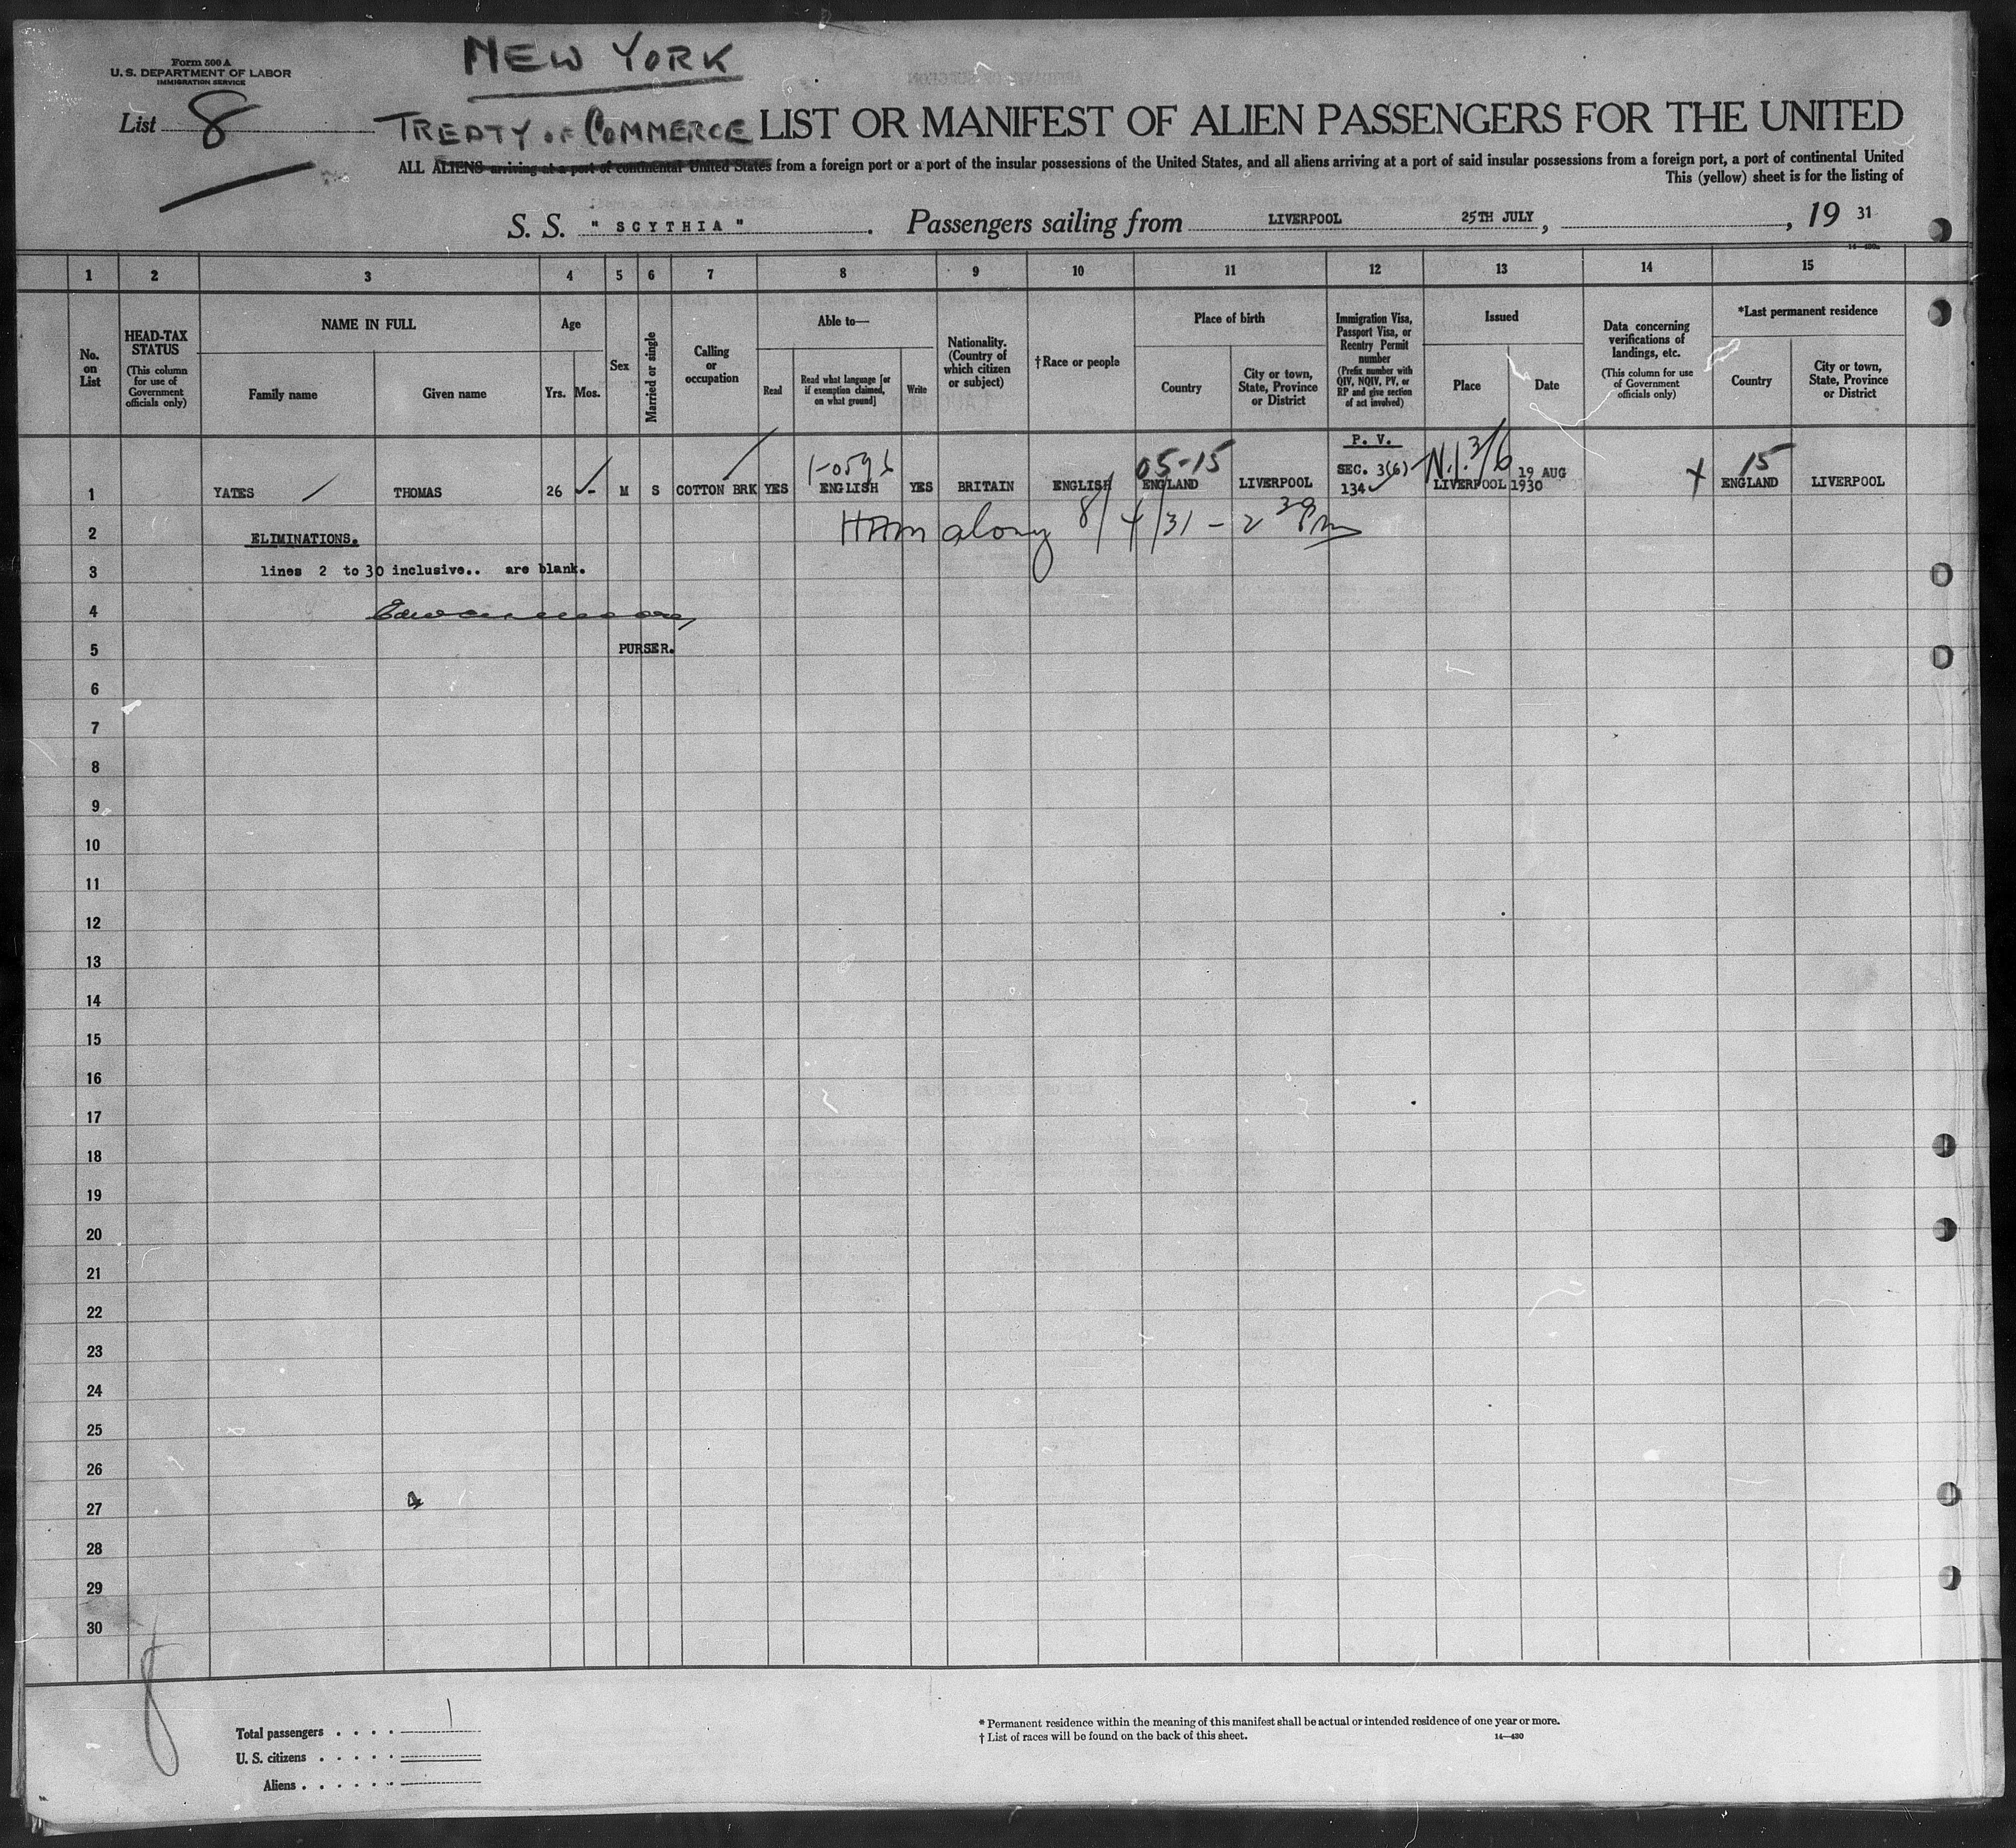 NEW YORK
Form 500 A
U. S. DEPARTMENT OF LABOR
IMMIGRATION SERVICE
List 8
TREATY OF COMMERCE LIST OR MANIFEST OF ALIEN PASSENGERS FOR THE UNITED
ALL ALIENS arriving at a port of continental United States from a foreign port or a port of the insular possessions of the United States, and all aliens arriving at a port of said insular possessions from a foreign port, a port of continental United
This (yellow) sheet is for the listing of
S. S. " SCYTHIA ". Passengers sailing from LIVERPOOL 25TH JULY, , 19 31
1 2 3 4 5 6 7 8 9 10 11 12 13 14 15
No. on List
HEAD-TAX STATUS
(This column for use of Government officials only)
NAME IN FULL
Family name
Given name
Age
Yrs.
Mos.
Sex
Married or single
Calling or occupation
Able to—
Read
Read what language [or if exemption claimed, on what ground]
Write
Nationality. (Country of which citizen or subject)
†Race or people
Place of birth
Country
City or town, State, Province or District
Immigration Visa, Passport Visa, or Reentry Permit number
(Prefix number with QIV, NQIV, PV, or RP and give section of act involved)
Issued
Place
Date
Data concerning verifications of landings, etc.
(This column for use of Government officials only)
*Last permanent residence
Country
City or town, State, Province or District
P. V.
05-15 SEC. 3(6) N.I. 3/6 19 AUG 15
1 YATES THOMAS 26 - M S COTTON BRK YES ENGLISH YES BRITAIN ENGLISH ENGLAND LIVERPOOL 134 LIVERPOOL 1930 ENGLAND LIVERPOOL
2 ELIMINATIONS. along 8/4/31 - 2
3 lines 2 to 30 inclusive.. are blank.
4
5 PURSER.
6
7
8
9
10
11
12
13
14
15
16
17
18
19
20
21
22
23
24
25
26
27
28
29
30
8
Total passengers . . . . 1
U. S. citizens . . . . .
Aliens . . . . . .
* Permanent residence within the meaning of this manifest shall be actual or intended residence of one year or more.
† List of races will be found on the back of this sheet. 14—430